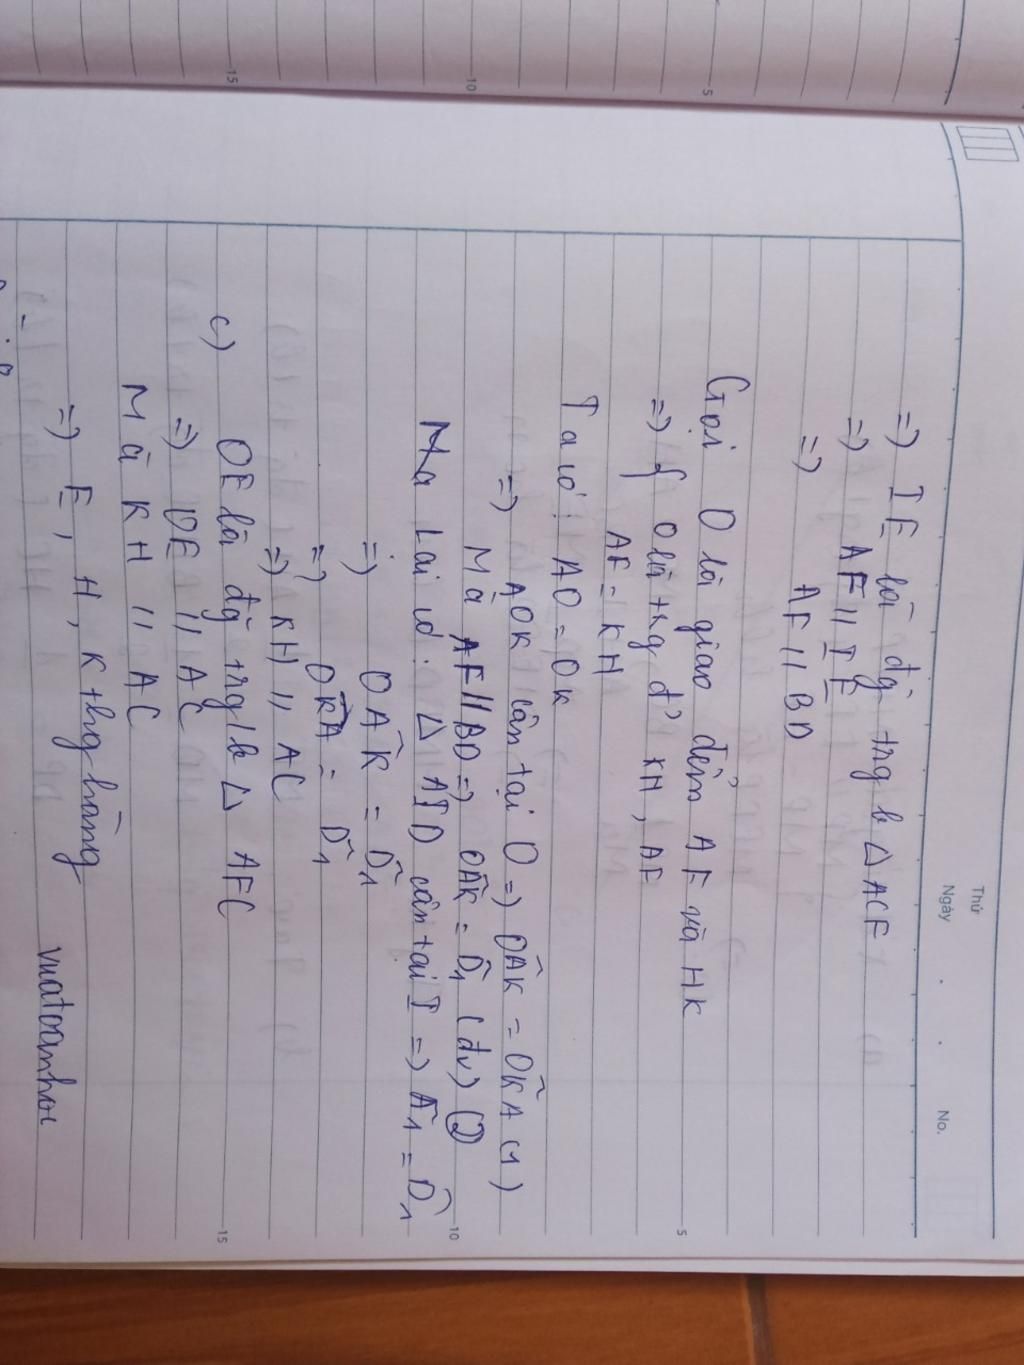 Thứ
Ngày . . No.
=) IE là đg trg b △ ACF
=) AF // IE
=) AF // BD
Gọi O là giao điểm AF và HK
=) { O là trg đ' KH, AF
AF = KH
Ta có: AO = OK
=) AOK cân tại O =) OÂK = OK̂A (1)
Mà AF // BD =) OÂK = D̂1 (đv) (2)
Ma Lại có: △ AID cân tại I =) Â1 = D̂1
=) OÂK = D̂1
=) OK̂A = D̂1
=) KH // AC
c) OE là đg trg b △ AFC
=) OE // AC
Mà KH // AC
=) E, H, K thg hàng
vuatoanhoc
5
10
15
5
10
15